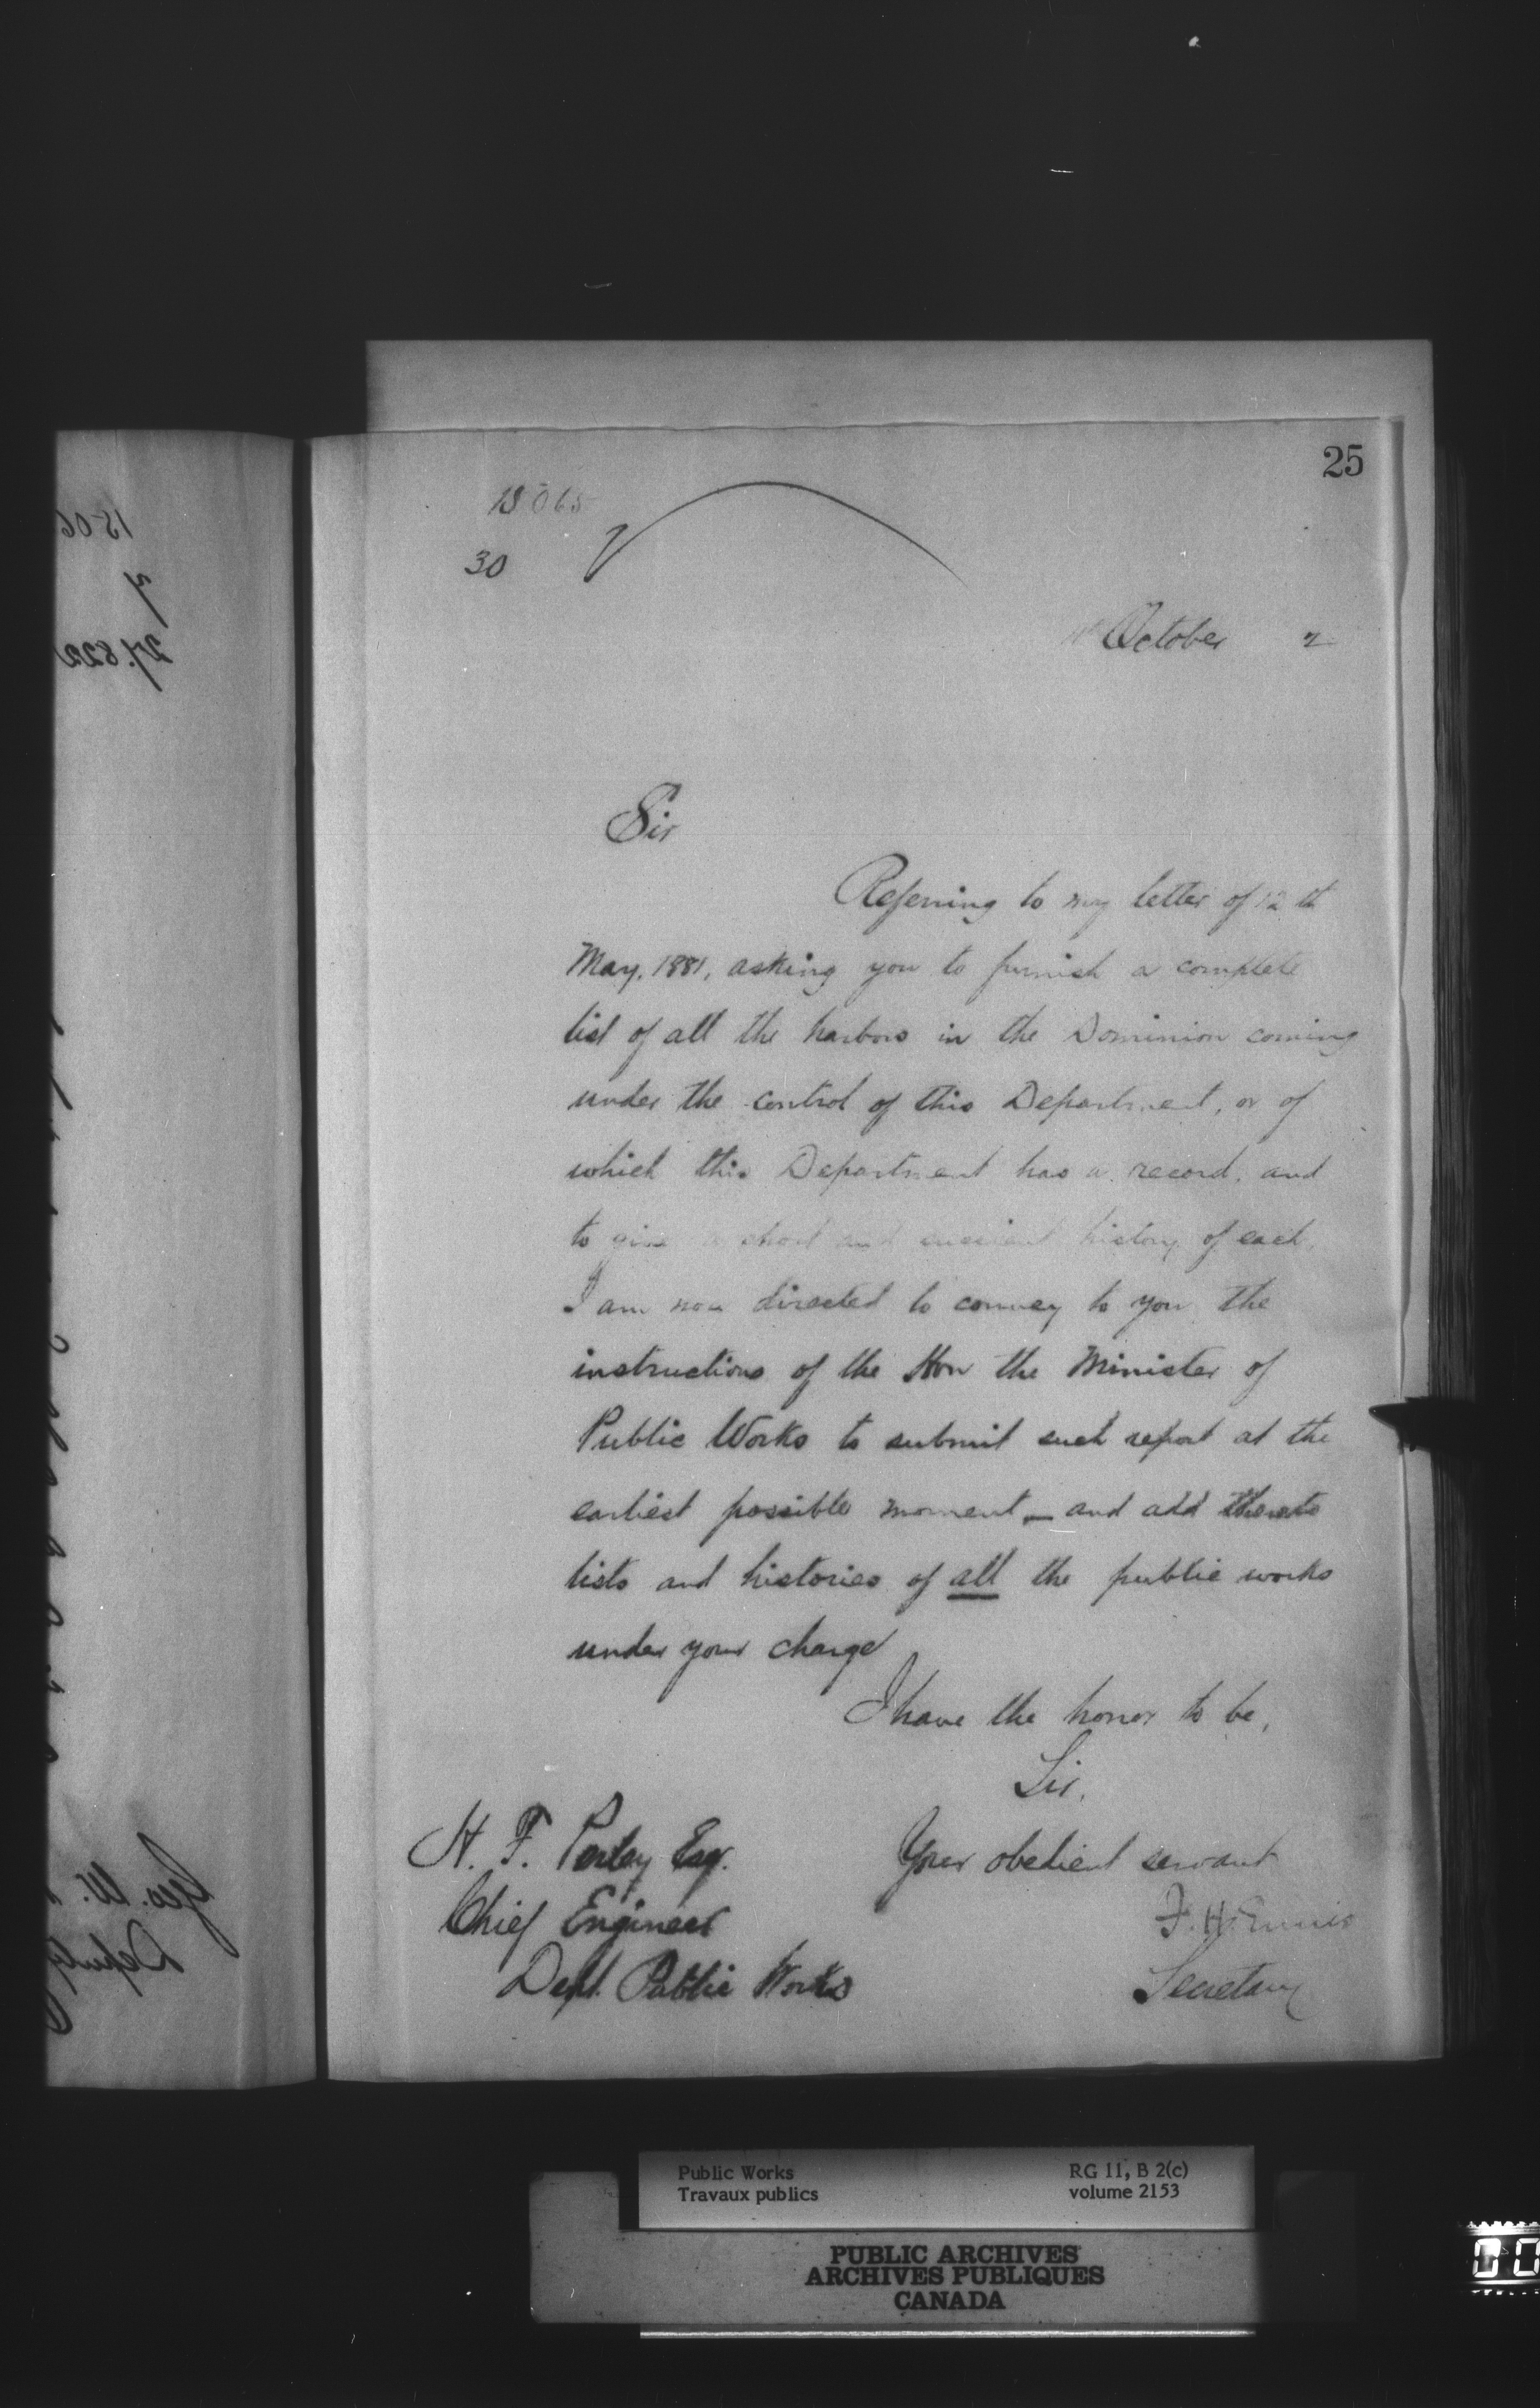 25
15065
30
October 2
Sir
Referring to my letter of 12th
May, 1881, asking you to furnish a complete
list of all the harbors in the Dominion coming
under the control of this Department, or of
which this Department has a record, and
to give a short and succinct history of each,
I am now directed to convey to you the
instructions of the Hon the Minister of
Public Works to submit such report at the
earliest possible moment — and add thereto
lists and histories of all the public works
under your charge
I have the honor to be,
Sir,
Your obedient servant
F. H. Ennis
Secretary
H. F. Perley Esqr.
Chief Engineer
Dept. Public Works
Geo. W.
Deputy
27.822
7
Public Works
Travaux publics
RG 11, B 2(c)
volume 2153
PUBLIC ARCHIVES
ARCHIVES PUBLIQUES
CANADA
00